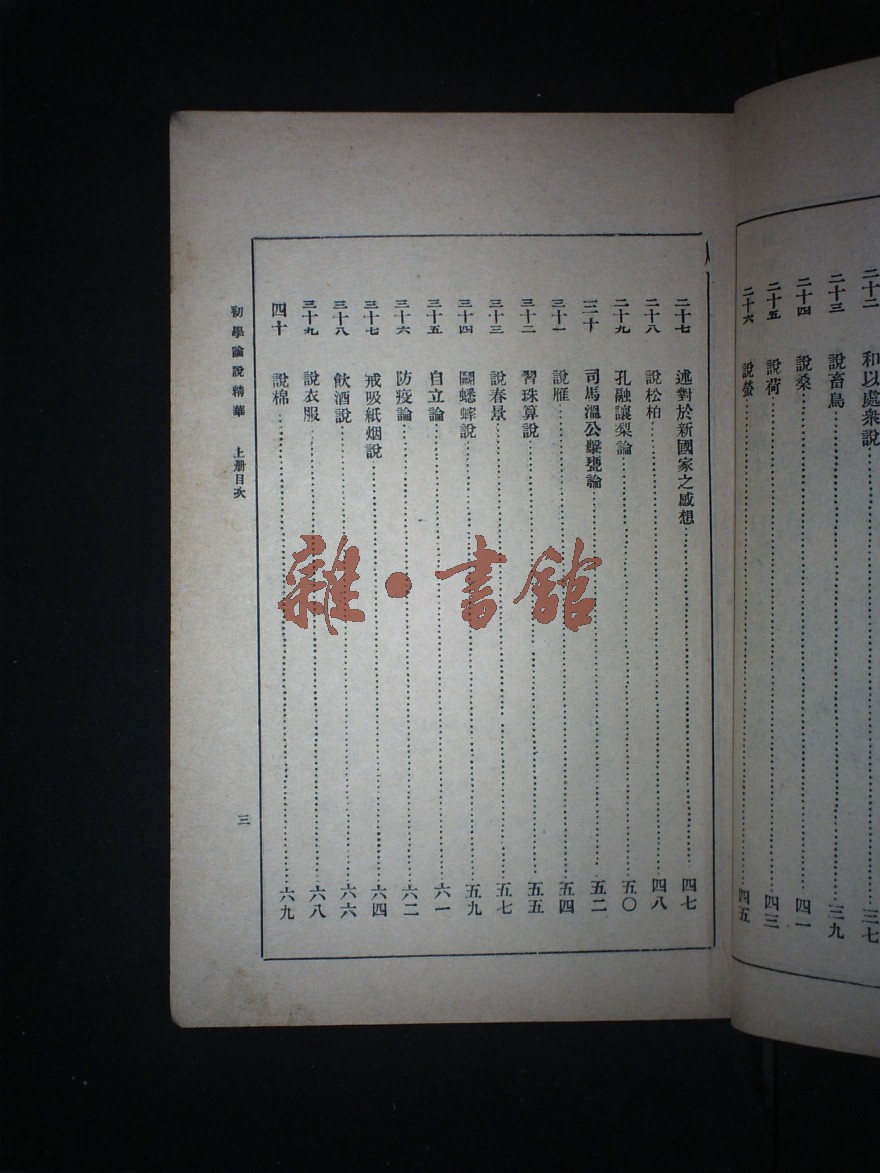 二十二 和以處衆說 三七
二十三 說畜鳥 三九
二十四 說桑 四一
二十五 說荷 四三
二十六 說螢 四五
二十七 述對於新國家之感想 四七
二十八 說松柏 四八
二十九 孔融讓梨論 五〇
三十 司馬溫公擊甕論 五二
三十一 說雁 五四
三十二 習珠算說 五五
三十三 說春景 五七
三十四 鬭蟋蟀說 五九
三十五 自立論 六一
三十六 防疫論 六二
三十七 戒吸紙烟說 六四
三十八 飲酒說 六六
三十九 說衣服 六八
四十 說棉 六九
初學論說精華 上册目次 三
雜·書館